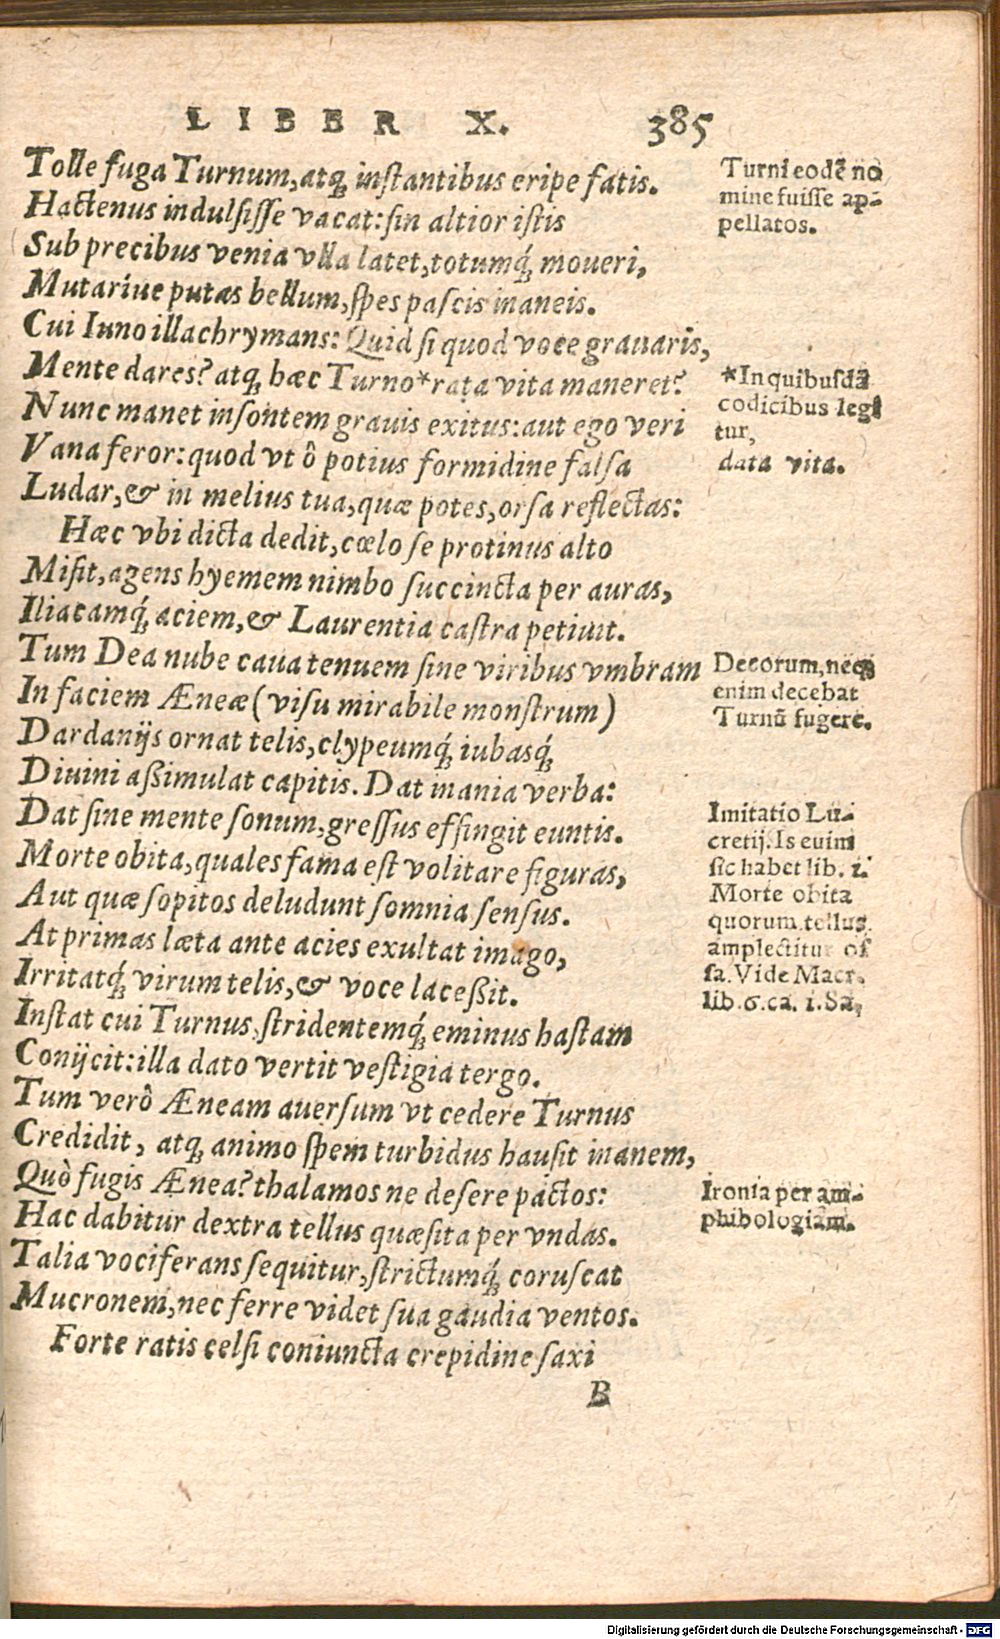 LIBER X. 385
Tolle fuga Turnum, atq; inſtantibus eripe fatis.
Hactenus indulſiſſe vacat: ſin altior iſtis
Sub precibus venia vlla latet, totumq́; moueri,
Mutariue putas bellum, ſpes paſcis inaneis.
Cui Iuno illachrymans: Quid ſi quod voce grauaris,
Mente dares? atq; hæc Turno*rata vita maneret?
Nunc manet inſontem grauis exitus: aut ego veri
Vana feror: quod vt ô potius formidine falſa
Ludar, & in melius tua, quæ potes, orſa reflectas:
Hæc vbi dicta dedit, cœlo ſe protinus alto
Miſit, agens hyemem nimbo ſuccincta per auras,
Iliacamq́; aciem, & Laurentia caſtra petiuit.
Tum Dea nube caua tenuem ſine viribus vmbram
In faciem Æneæ (viſu mirabile monſtrum)
Dardanijs ornat telis, clypeumq́; iubasq́;
Diuini aßimulat capitis. Dat inania verba:
Dat ſine mente ſonum, greſſus effingit euntis.
Morte obita, quales fama eſt volitare figuras,
Aut quæ ſopitos deludunt ſomnia ſenſus.
At primas læta ante acies exultat imago,
Irritatq́; virum telis, & voce laceßit.
Inſtat cui Turnus, ſtridentemq́; eminus haſtam
Conijcit: illa dato vertit veſtigia tergo.
Tum verò Æneam auerſum vt cedere Turnus
Credidit, atq; animo ſpem turbidus hauſit inanem,
Quò fugis Ænea? thalamos ne deſere pactos:
Hac dabitur dextra tellus quæſita per vndas.
Talia vociferans ſequitur, ſtrictumq́; coruſcat
Mucronem, nec ferre videt ſua gaudia ventos.
Forte ratis celſi coniuncta crepidine ſaxi
B
Turni eodē no
mine fuiſſe ap-
pellatos.
*In quibuſdā
codicibus legi
tur,
data vita.
Decorum, neq;
enim decebat
Turnū fugere.
Imitatio Lu-
cretij. Is euim
ſic habet lib. 1.
Morte obita
quorum tellus
amplectitur oſ
ſa. Vide Macr.
lib. 6. ca. 1. Sa,
Ironia per am-
phibologiam.
Digitalisierung gefördert durch die Deutsche Forschungsgemeinschaft - DFG